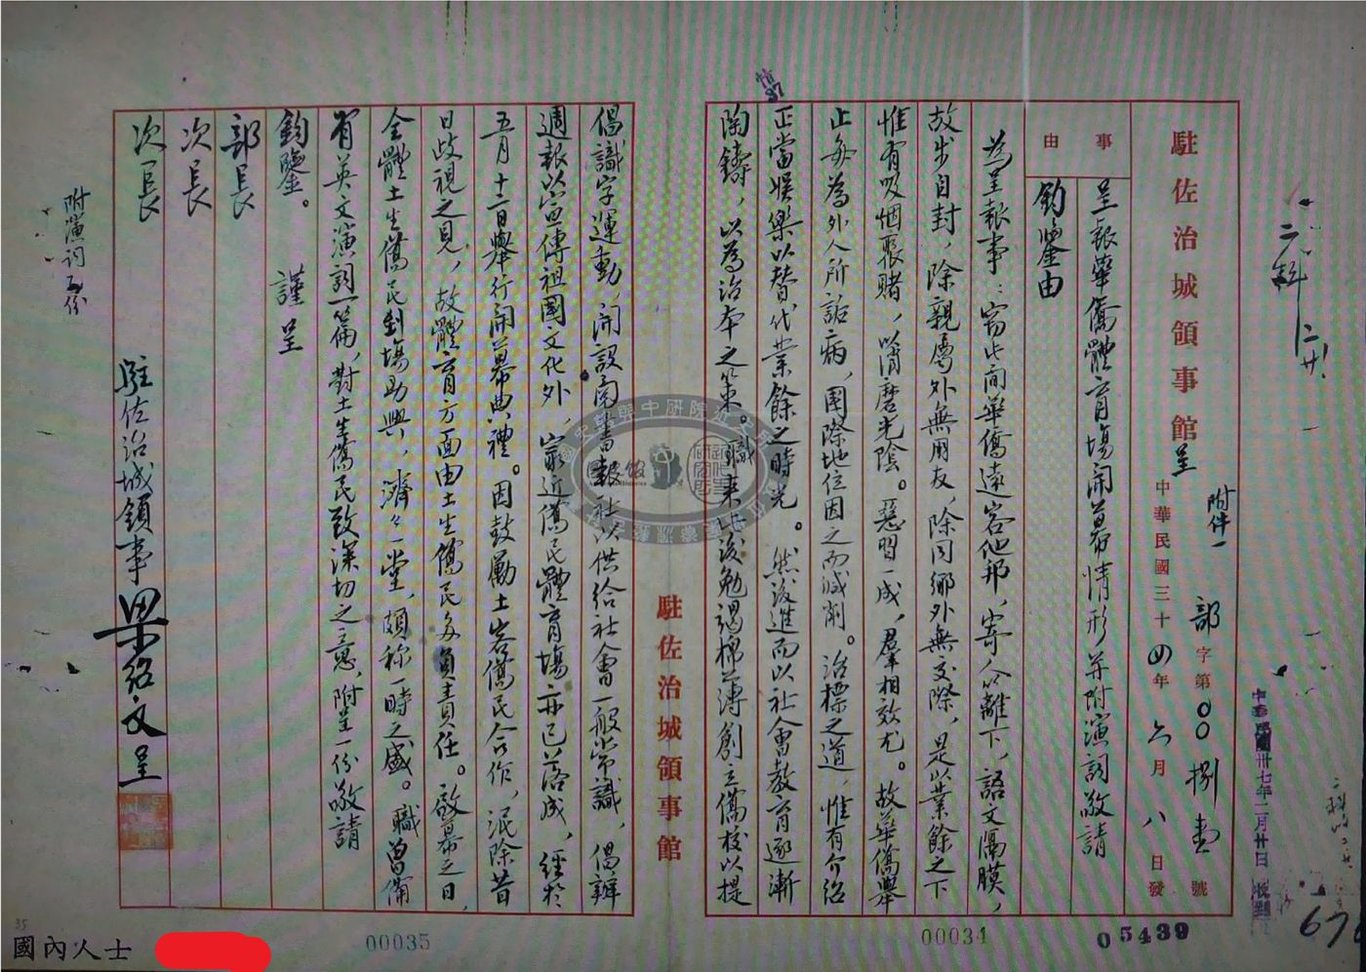 駐佐治城領事館呈
附件一
部字第00捌壹號
中華民國三十四年六月八日發
事由
呈報華僑體育場開幕情形并附演詞敬請
鈞鑒由
為呈報事：窃此间華僑遠客他邦，寄人篱下，語文隔膜，
故步自封，除親屬外無朋友，除同鄉外無交際，是以業餘之下
惟有吸烟聚賭，以消磨光陰。惡習一成，羣相效尤。故華僑舉
止每為外人所詬病，國際地位因之而減削。治標之道，惟有介绍
正當娛樂以替代業餘之時光。然後進而以社會教育逐漸
陶鑄，以為治本之策。職來此後勉竭棉薄創立僑校以提
駐佐治城領事館
倡識字運動，開設閱書報社以供给社會一般常識，倡辦
週報以宣傳祖國文化外，最近僑民體育場亦已落成，經於
五月十二日舉行開幕典禮。因鼓勵土客僑民合作，泯除昔
日歧視之見，故體育方面由土生僑民多負責任。啟幕之日，
全體土生僑民到場助興，濟々一堂，頗称一時之盛。職曾備
有英文演詞一篇，對土生僑民致深切之意，附呈一份敬請
鈞鑒。 謹呈
部長
次長
次長
駐佐治城領事梁紹文呈
附演詞一份
二科
中華民國卅七年二月廿日
05439
00034
00035
35
國內人士